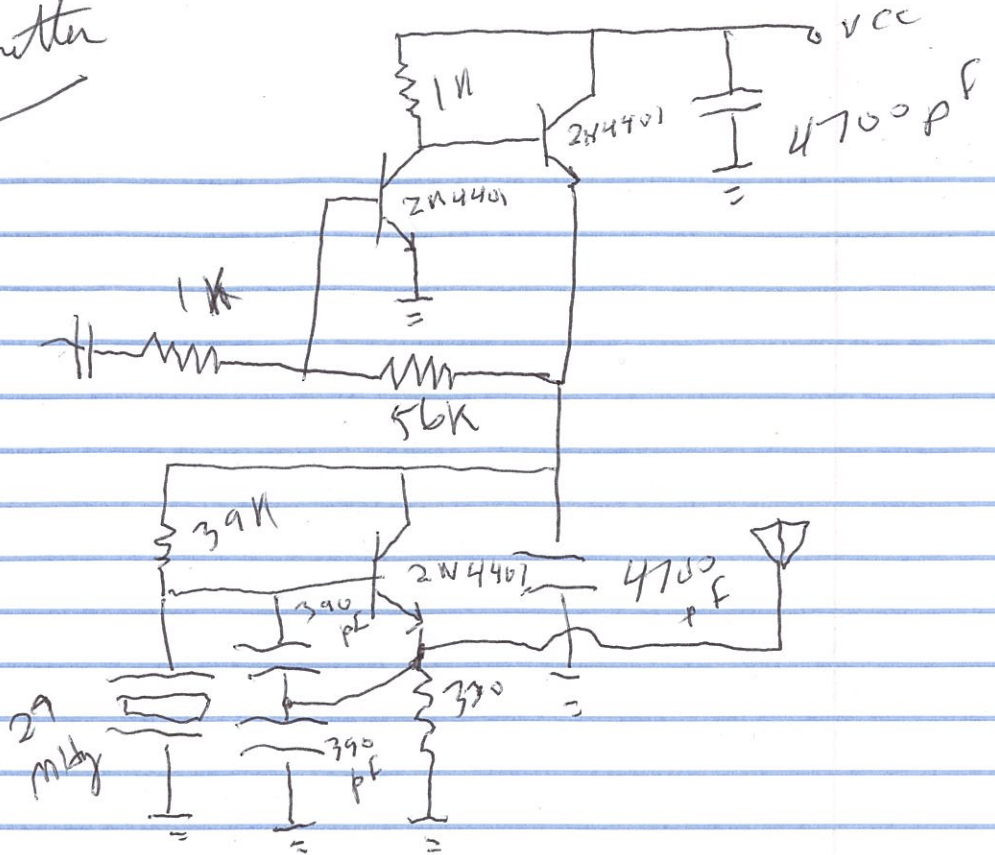 VCC
1K
2N4401
4700 pF
2N4401
1K
56K
39K
2N4401
4700 pF
390 pF
330
390 pF